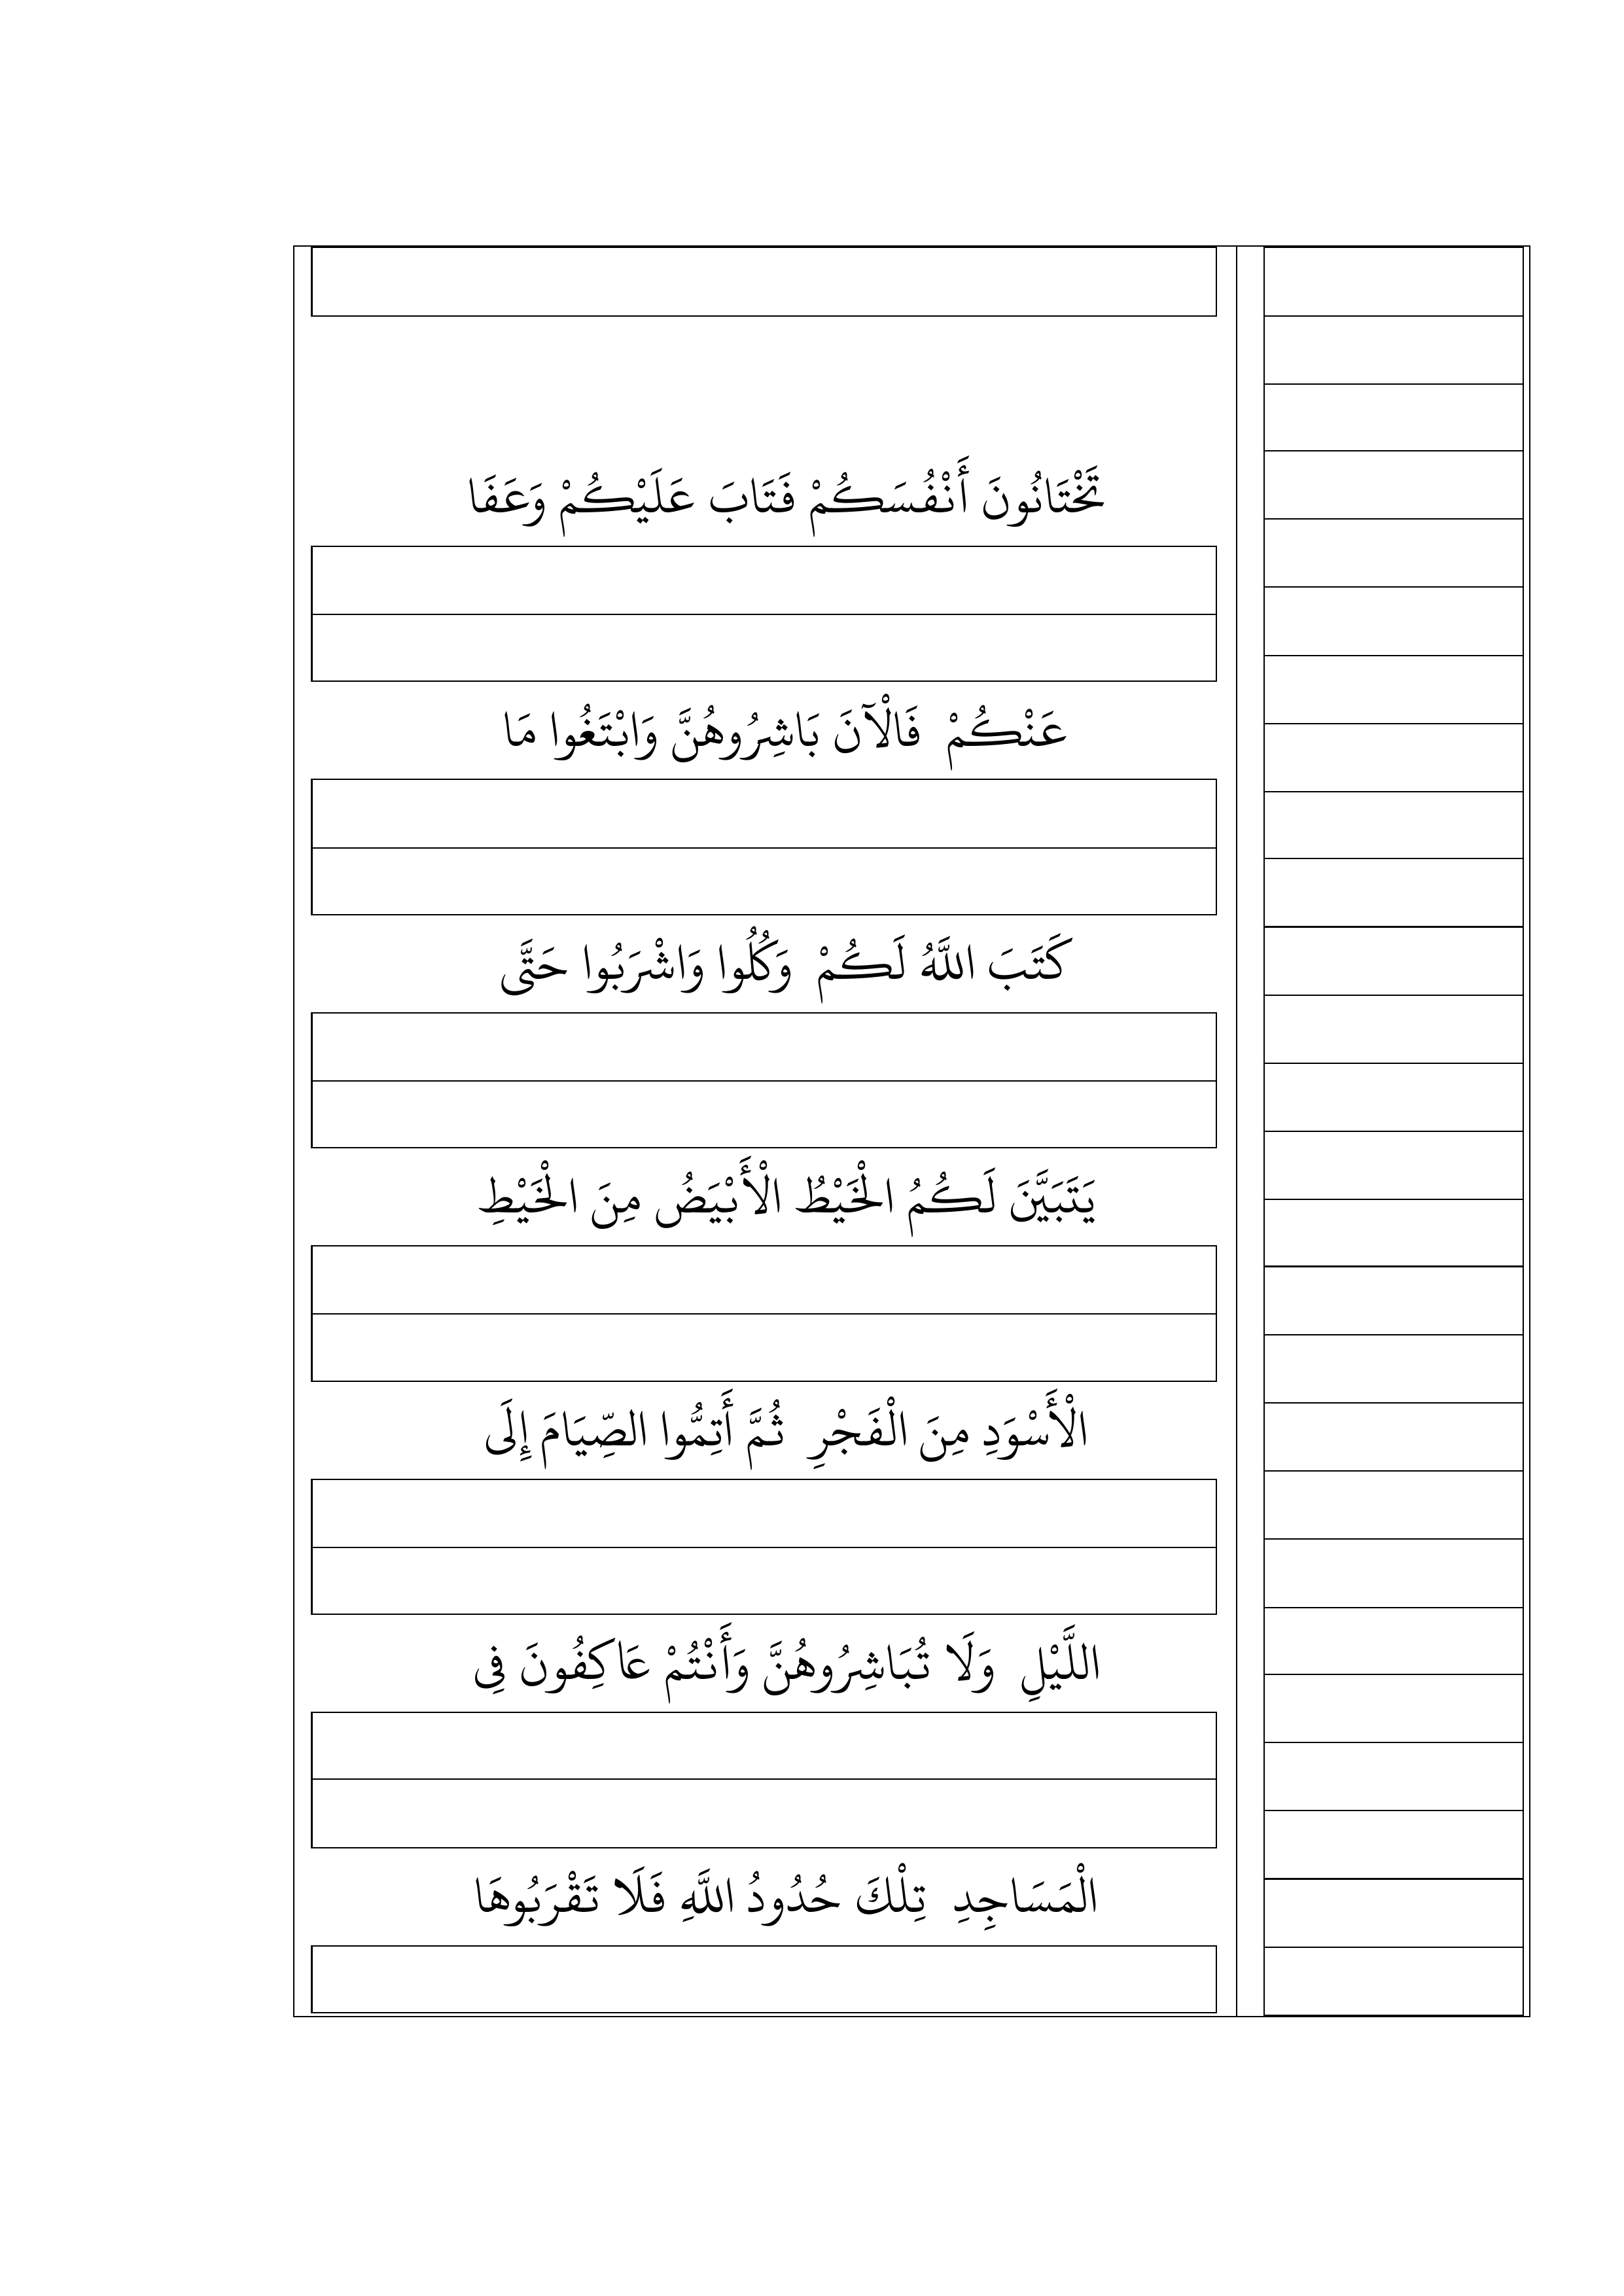 تَخْتَانُونَ أَنْفُسَكُمْ فَتَابَ عَلَيْكُمْ وَعَفَا
عَنْكُمْ فَالْآنَ بَاشِرُوهُنَّ وَابْتَغُوا مَا
كَتَبَ اللَّهُ لَكُمْ وَكُلُوا وَاشْرَبُوا حَتَّى
يَتَبَيَّنَ لَكُمُ الْخَيْطُ الْأَبْيَضُ مِنَ الْخَيْطِ
الْأَسْوَدِ مِنَ الْفَجْرِ ثُمَّ أَتِمُّوا الصِّيَامَ إِلَى
اللَّيْلِ وَلَا تُبَاشِرُوهُنَّ وَأَنْتُمْ عَاكِفُونَ فِى
الْمَسَاجِدِ تِلْكَ حُدُودُ اللَّهِ فَلَا تَقْرَبُوهَا